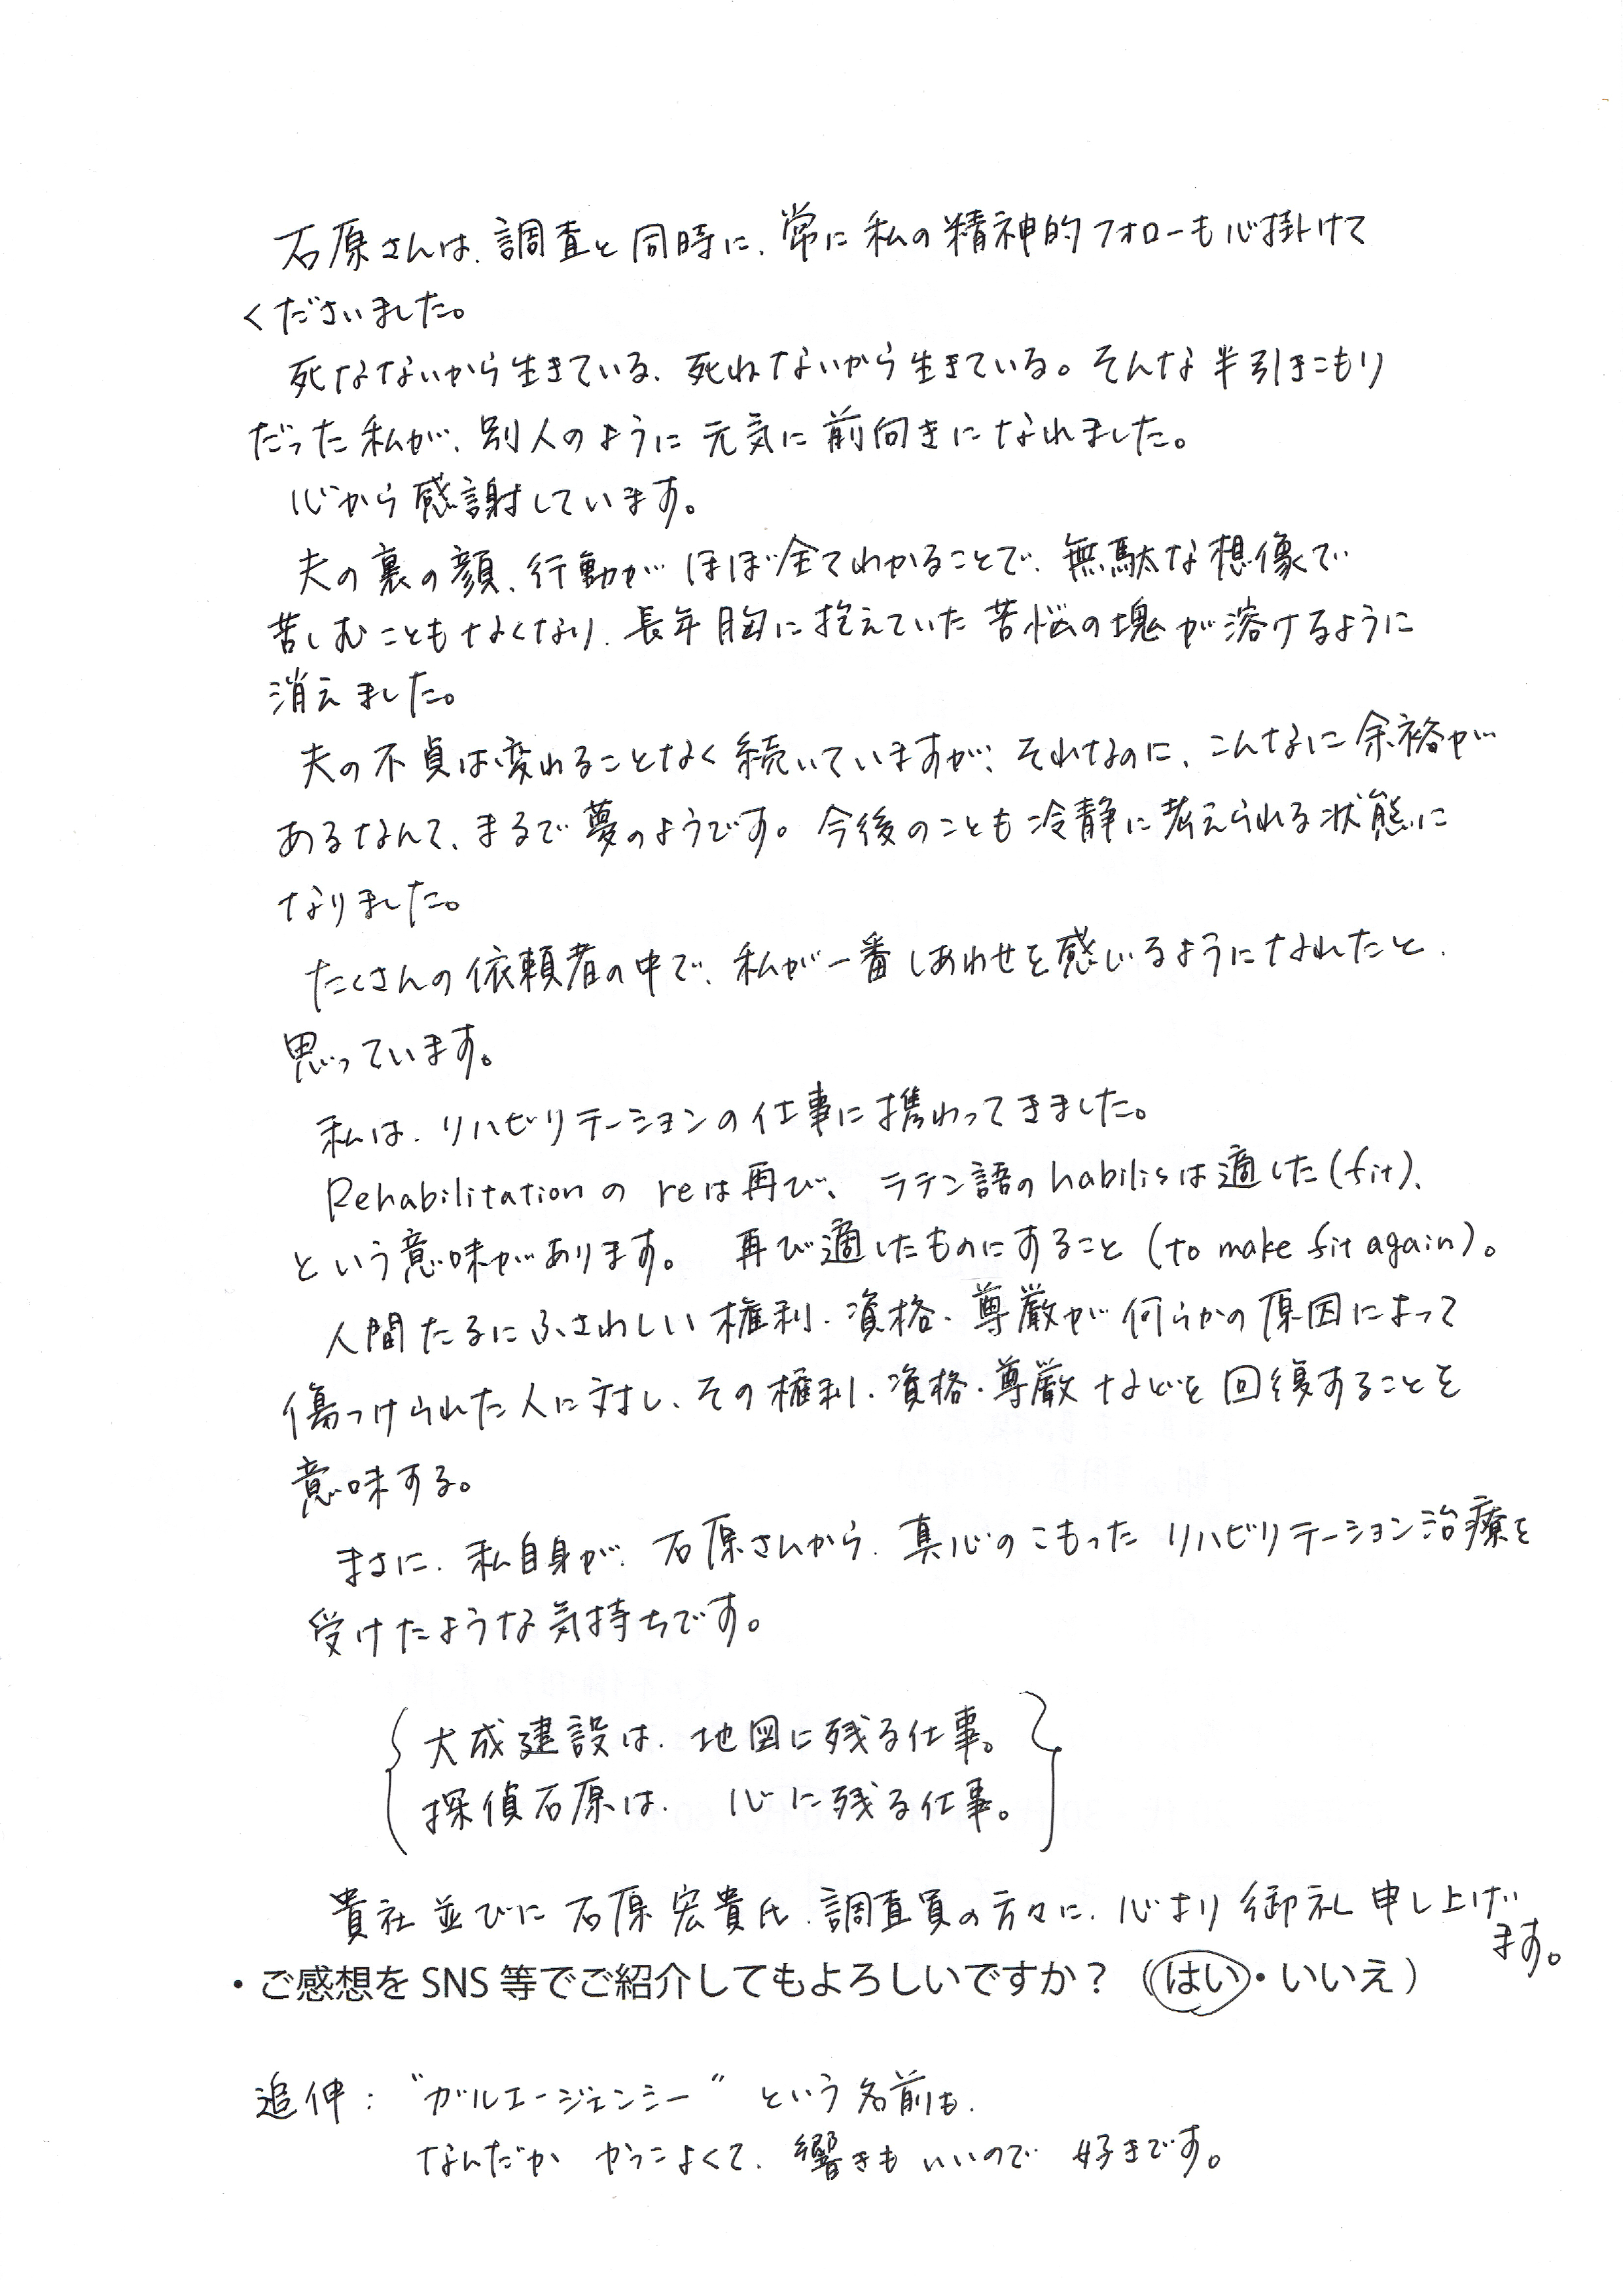 石原さんは、調査と同時に、常に私の精神的フォローも心掛けて
くださいました。
死なないから生きている、死ねないから生きている。そんな半引きこもり
だった私が、別人のように元気に前向きになれました。
心から感謝しています。
夫の裏の顔、行動がほぼ全てわかることで、無駄な想像で
苦しむこともなくなり、長年胸に抱えていた苦悩の塊が溶けるように
消えました。
夫の不貞は変わることなく続いていますが、それなのに、こんなに余裕が
あるなんて、まるで夢のようです。今後のことも冷静に考えられる状態に
なりました。
たくさんの依頼者の中で、私が一番しあわせを感じるようになれたと、
思っています。
私は、リハビリテーションの仕事に携わってきました。
Rehabilitationの reは再び、ラテン語のhabilisは適した(fit)、
という意味があります。 再び適したものにすること(to make fit again)。
人間たるにふさわしい権利・資格・尊厳が何らかの原因によって
傷つけられた人に対し、その権利・資格・尊厳などを回復することを
意味する。
まさに、私自身が、石原さんから、真心のこもったリハビリテーション治療を
受けたような気持ちです。
大成建設は、地図に残る仕事。
探偵石原は、 心に残る仕事。
貴社並びに石原宏貴氏、調査員の方々に、心より御礼申し上げ
ます。
・ご感想をSNS等でご紹介してもよろしいですか？（はい・いいえ）
追伸：“ガルエージェンシー”という名前も、
なんだかかっこよくて、響きもいいので好きです。